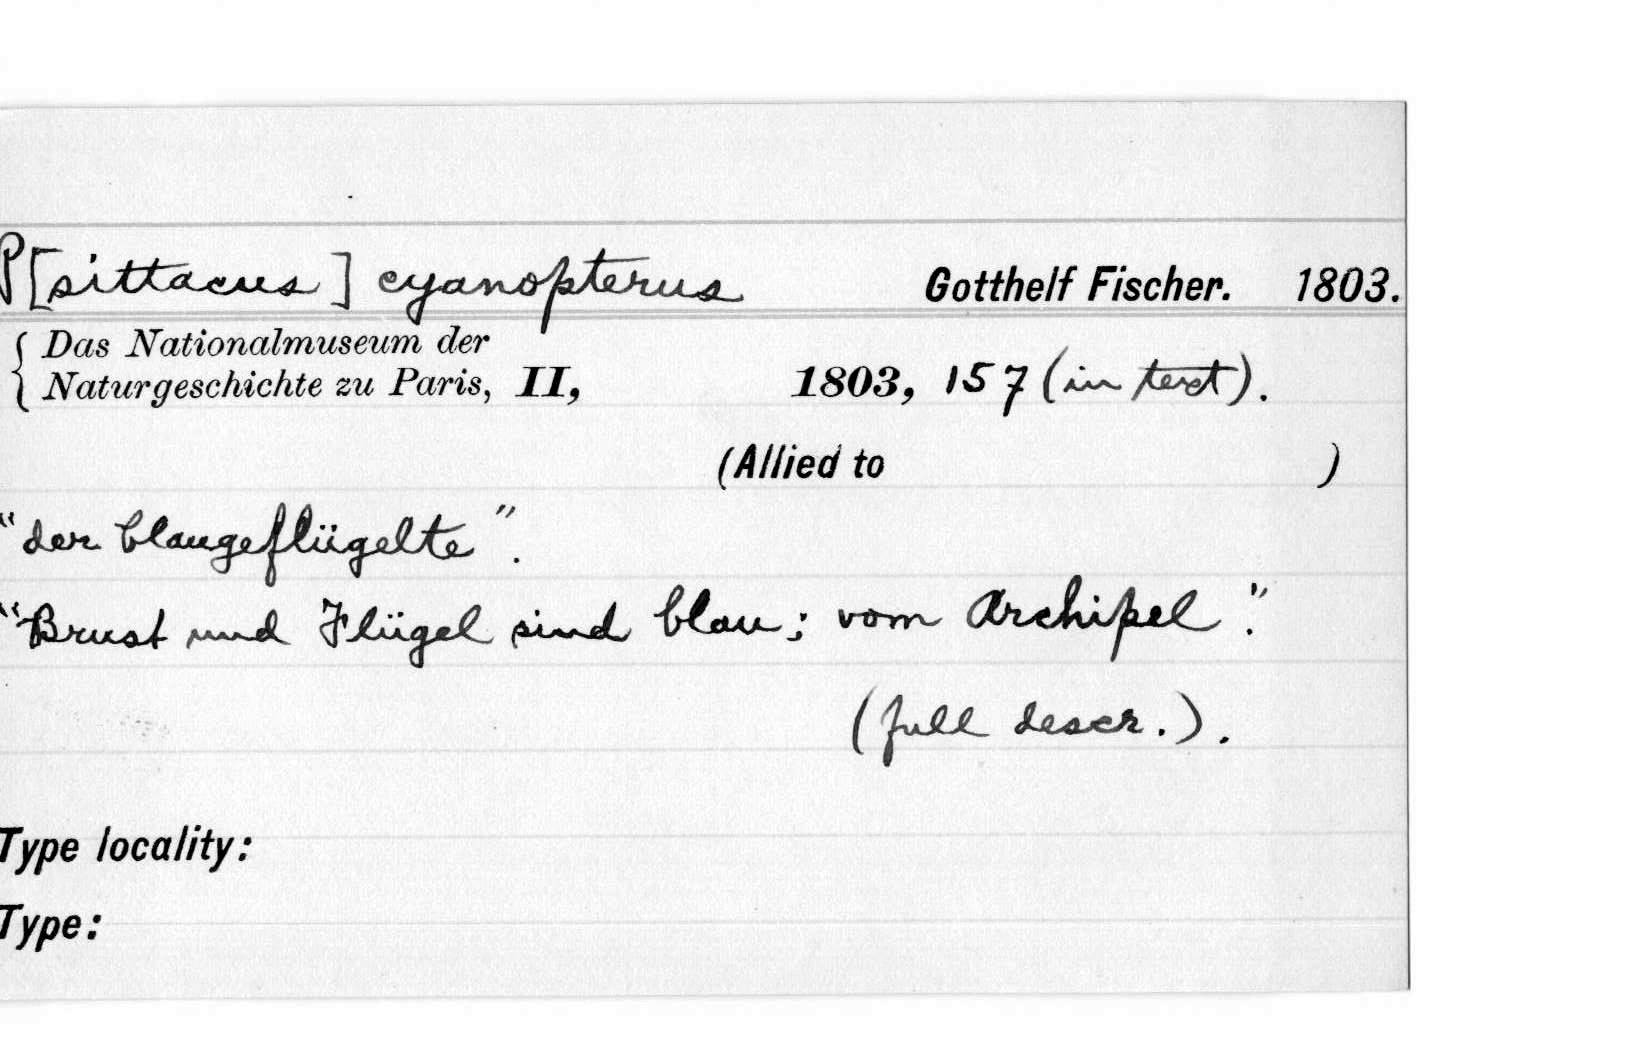 P[sittacus] cyanopterus Gotthelf Fischer. 1803.
{ Das Nationalmuseum der
Naturgeschichte zu Paris, II, 1803, 157 (in text).
(Allied to )
"der blaugeflügelte".
"Brust und Flügel sind blau; vom Archipel."
(full descr.).
Type locality:
Type: